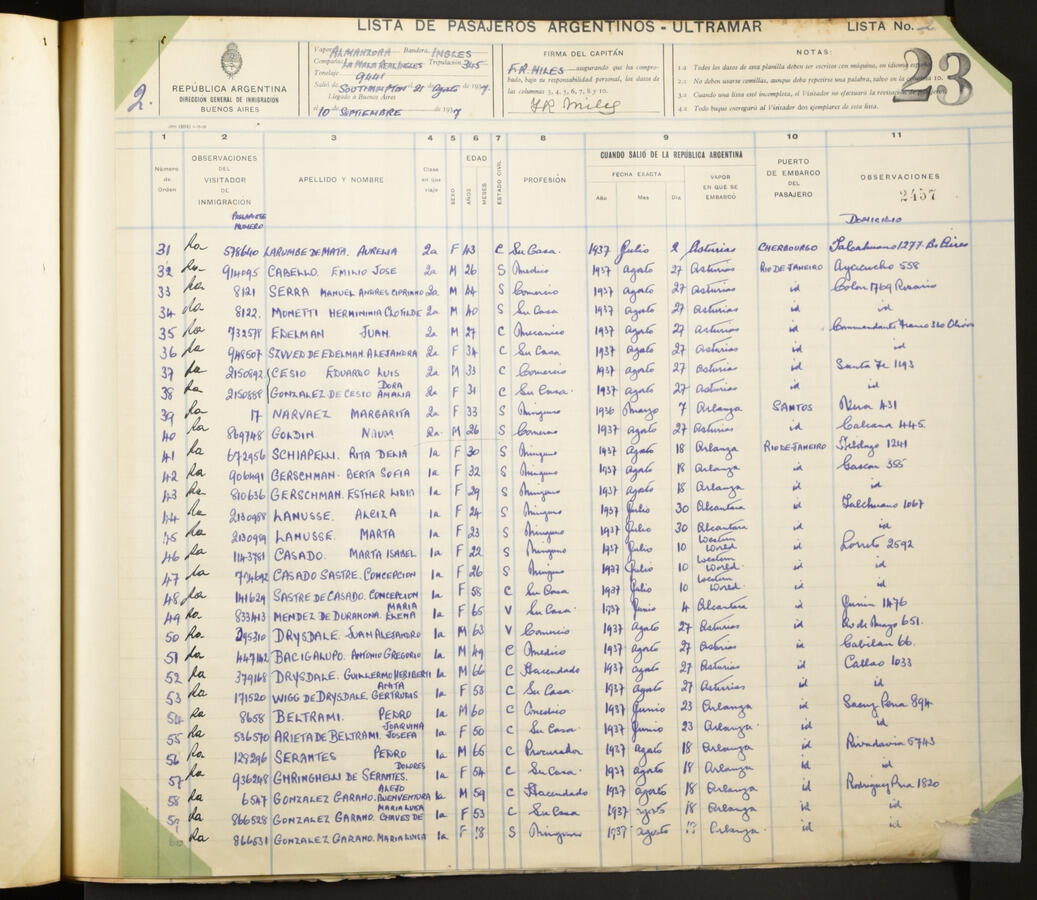 LISTA DE PASAJEROS ARGENTINOS - ULTRAMAR
LISTA No.
2.
REPÚBLICA ARGENTINA
DIRECCION GENERAL DE INMIGRACIÓN
BUENOS AIRES
Vapor ALMANZORA Bandera INGLES
Compañía LA MALA REAL INGLES Tripulación 345
Tonelaje 9441
Salió de SOUTHAMPTON 21 Agosto de 1937
Llegado a Buenos Aires
el 10 SEPTIEMBRE de 1937
FIRMA DEL CAPITÁN
F.R. MILES asegurando que ha compro-
bado, bajo su responsabilidad personal, los datos de
las columnas 3, 4, 5, 6, 7, 8, y 10.
F.R. Miles
NOTAS:
1.a Todos los datos de esta planilla deben ser escritos con máquina, en idioma
2.a No deben usarse comillas, aunque deba repetirse una palabra, salvo en la columna 10.
3.a Cuando una lista fuera incompleta, el Visitador no efectuará la
4.a Todo buque entregará al Visitador dos ejemplares de esta lista.
23
1 2 3 4 5 6 7 8 9 10 11
Número de Orden
OBSERVACIONES DEL VISITADOR DE INMIGRACIÓN
APELLIDO Y NOMBRE
Clase en que viaje
SEXO
EDAD
AÑOS
MESES
ESTADO CIVIL
PROFESIÓN
CUANDO SALIÓ DE LA REPÚBLICA ARGENTINA
FECHA EXACTA
Año Mes Día
VAPOR EN QUE SE EMBARCÓ
PUERTO DE EMBARCO DEL PASAJERO
OBSERVACIONES
2457
PASAPORTE NUMERO
DOMICILIO
31 578640 LARUMBE DE MATA. AURELIA 2a F 43 C Su Casa. 1937 Julio 2 Asturias CHERBOURGO Talcahuano 1277. Bs Aires
32 914095 CABELLO. EMILIO JOSE 2a M 26 S Medico 1937 agosto 27 Asturias RIO DE JANEIRO Ayacucho 558
33 8121 SERRA MANUEL ANDRES CIPRIANO 2a M 44 S Comercio 1937 Agosto 27 Asturias id Colon 1769 Rosario
34 8122. MONETTI HERMINIMIA CLOTILDE 2a M 40 S Su Casa 1937 Agosto 27 Asturias id id
35 732578 EDELMAN JUAN. 2a M 27 C Mecanico 1937 Agosto 27 Asturias id
36 948507 SZWED DE EDELMAN. ALEJANDRA 2a F 34 C Su Casa 1937 agosto 27 Asturias id id
37 2150892 CESIO EDUARDO LUIS 2a M 33 C Comercio 1937 Agosto 27 Asturias id Santa Fe 1193
38 2150888 GONZALEZ DE CESIO DORA AMALIA 2a F 31 C Su Casa. 1937 Agosto 27 Asturias id id
39 17 NARVAEZ MARGARITA 2a F 33 S Ninguno 1936 Marzo 7 Arlanza SANTOS 431
40 869748 GOLDIN NAUM. 2a M 26 S Comercio 1937 Agosto 27 Asturias id 445.
41 672956 SCHIAPELLI. RITA DELIA 1a F 30 S Ninguno 1937 Agosto 18 Arlanza RIO DE JANEIRO 1241
42 906491 GERSCHMAN. BERTA SOFIA 1a F 32 S Ninguno 1937 Agosto 18 Arlanza id Gascon 355
43 810636 GERSCHMAN. ESTHER LIDIA 1a F 29 S Ninguno 1937 agosto 18 Arlanza id id
44 2130988 LANUSSE. ALCIZA 1a F 24 S Ninguno 1937 Julio 30 Alcantara id Talcahuano 1067
45 2130989 LANUSSE. MARTA 1a F 23 S Ninguno 1937 Julio 30 Alcantara id id
46 1143781 CASADO. MARTA ISABEL 1a F 22 S Ninguno 1937 Julio 10 Western World id Loreto 2592
47 CASADO SASTRE. CONCEPCION 1a F 26 S Ninguno 1937 Julio 10 Western World. id id
48 141629 SASTRE DE CASADO. CONCEPCION 1a F 58 C Su Casa 1937 Julio 10 Western World. id id
49 833413 MENDEZ DE DURAÑONA. MARIA ELENA 1a F 65 V Su Casa 1937 Junio 4 Alcantara id Junin 1476
50 295310 DRYSDALE. JUAN ALEJANDRO 1a M 63 V Comercio 1937 Agosto 27 Asturias id Rio de Mayo 651.
51 447142 BACIGALUPO. ANTONIO GREGORIO 1a M 49 C Medico 1937 Agosto 27 Asturias id Gabilan 66.
52 379168 DRYSDALE. GUILLERMO HERIBERTI 1a M 66 C Hacendado 1937 agosto 27 Asturias id Callao 1033
53 171520 WIGG DE DRYSDALE. ANITA GERTRUDIS 1a F 53 C Su Casa. 1937 Agosto 27 Asturias id id
54 8658 BELTRAMI. PEDRO 1a M 60 C Medico 1937 Junio 23 Arlanza id Saenz Pena 894
55 536570 ARIETA DE BELTRAMI. JOAQUINA JOSEFA 1a F 50 C Su Casa. 1937 Junio 23 Arlanza id id
56 128296 SERANTES PEDRO 1a M 65 C Procurador 1937 Agosto 18 Arlanza id Rivadavia 5743
57 936248 GHRINGHELLI DE SERANTES. DOLORES 1a F 54 C Su Casa. 1937 Agosto 18 Arlanza. id id
58 6547 GONZALEZ GARAÑO. ALEJO BUENVENTURA 1a M 59 C Hacendado 1937 agosto 18 Arlanza id Rodriguez Pena 1820
59 866528 GONZALEZ GARANO. MARIA LUISA CHAVES DE 1a F 53 C Su Casa 1937 agosto 18 Arlanza id id
60 866531 GONZALEZ GARANO. MARIA LUISA 1a F 18 S Ninguno 1937 agosto Arlanza id id